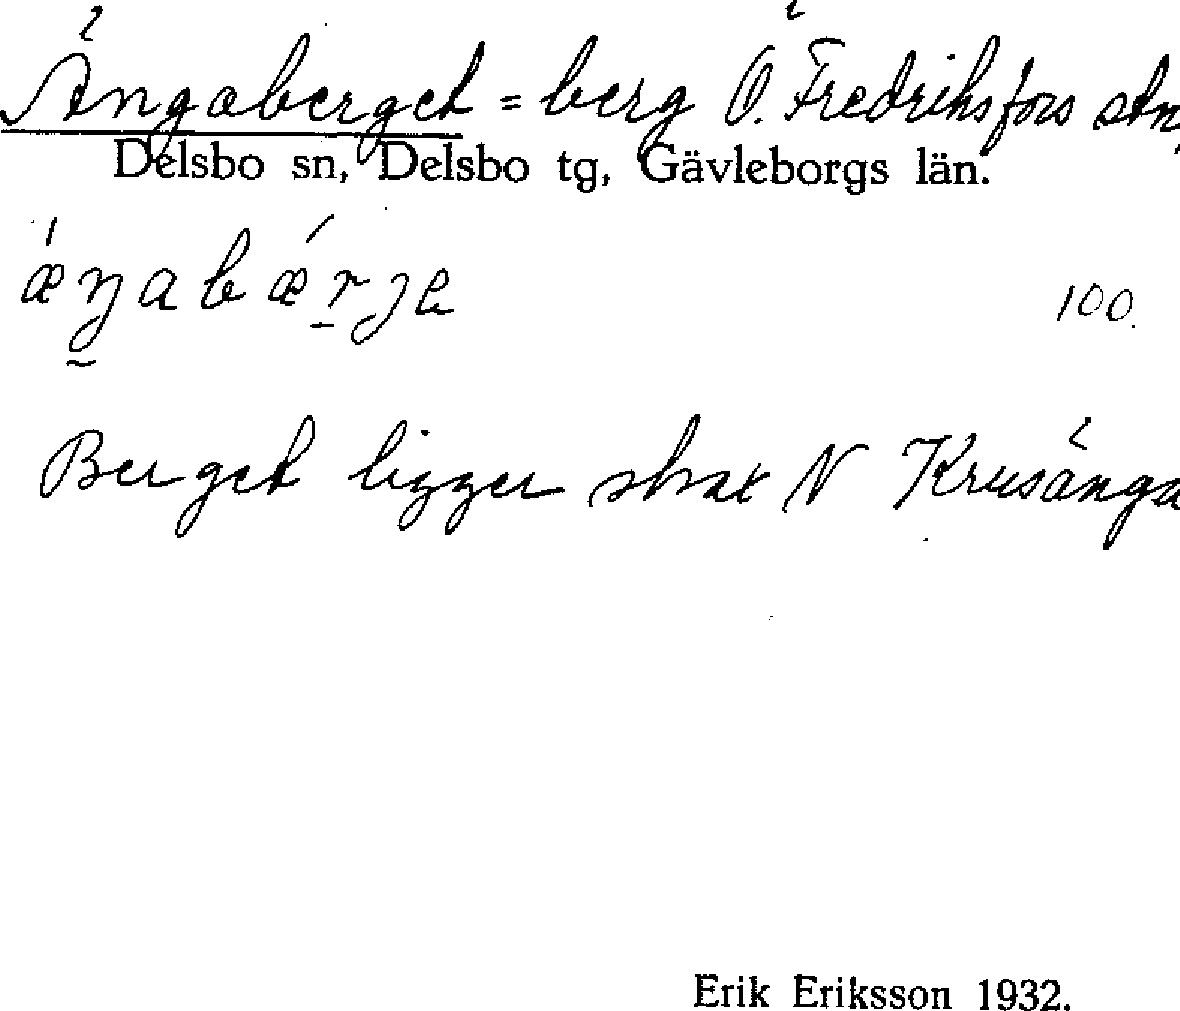 Ängaberget = berg Ö. Fredriksfors stn,
Delsbo sn, Delsbo tg, Gävleborgs län.
æŋabærje
100.
Berget ligger strax N Krusänga
Erik Eriksson 1932.